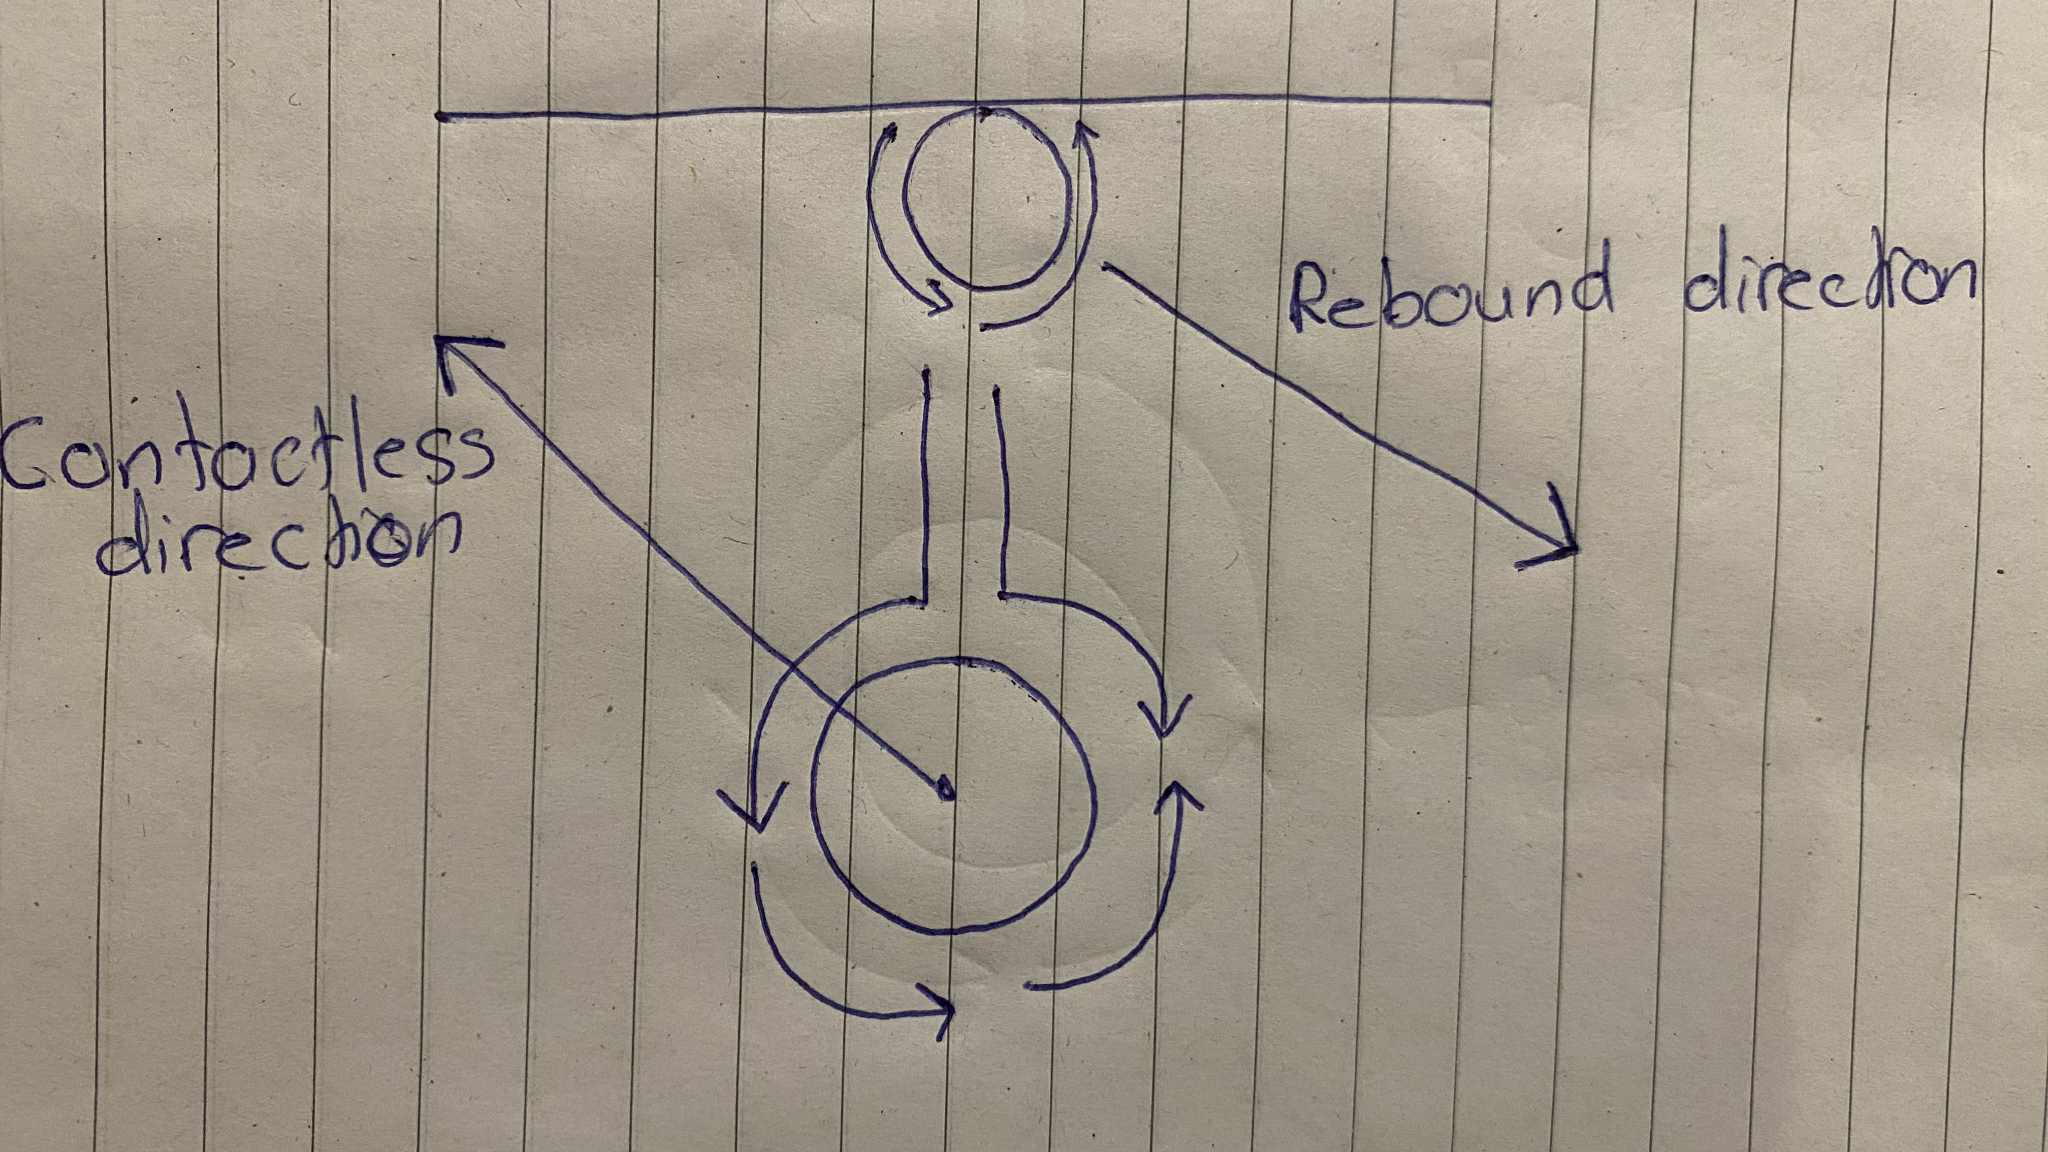 Rebound direction
Contactless
direction